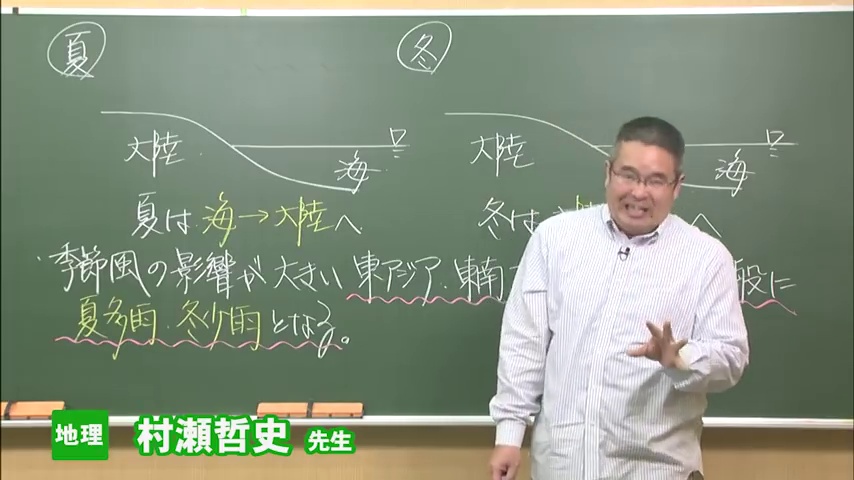 夏
冬
大陸
海
大陸
海
夏は 海→大陸へ
冬は
へ
季節風の影響が大きい東アジア・東南
般に
夏多雨・冬少雨となる。
地理 村瀬哲史 先生